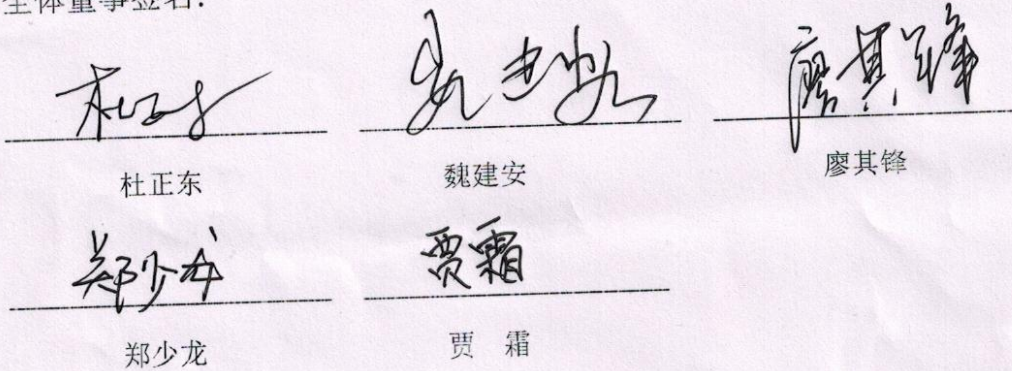 全体董事签名：
杜正东 魏建安 廖其锋
杜正东 魏建安 廖其锋
郑少龙 贾霜
郑少龙 贾 霜